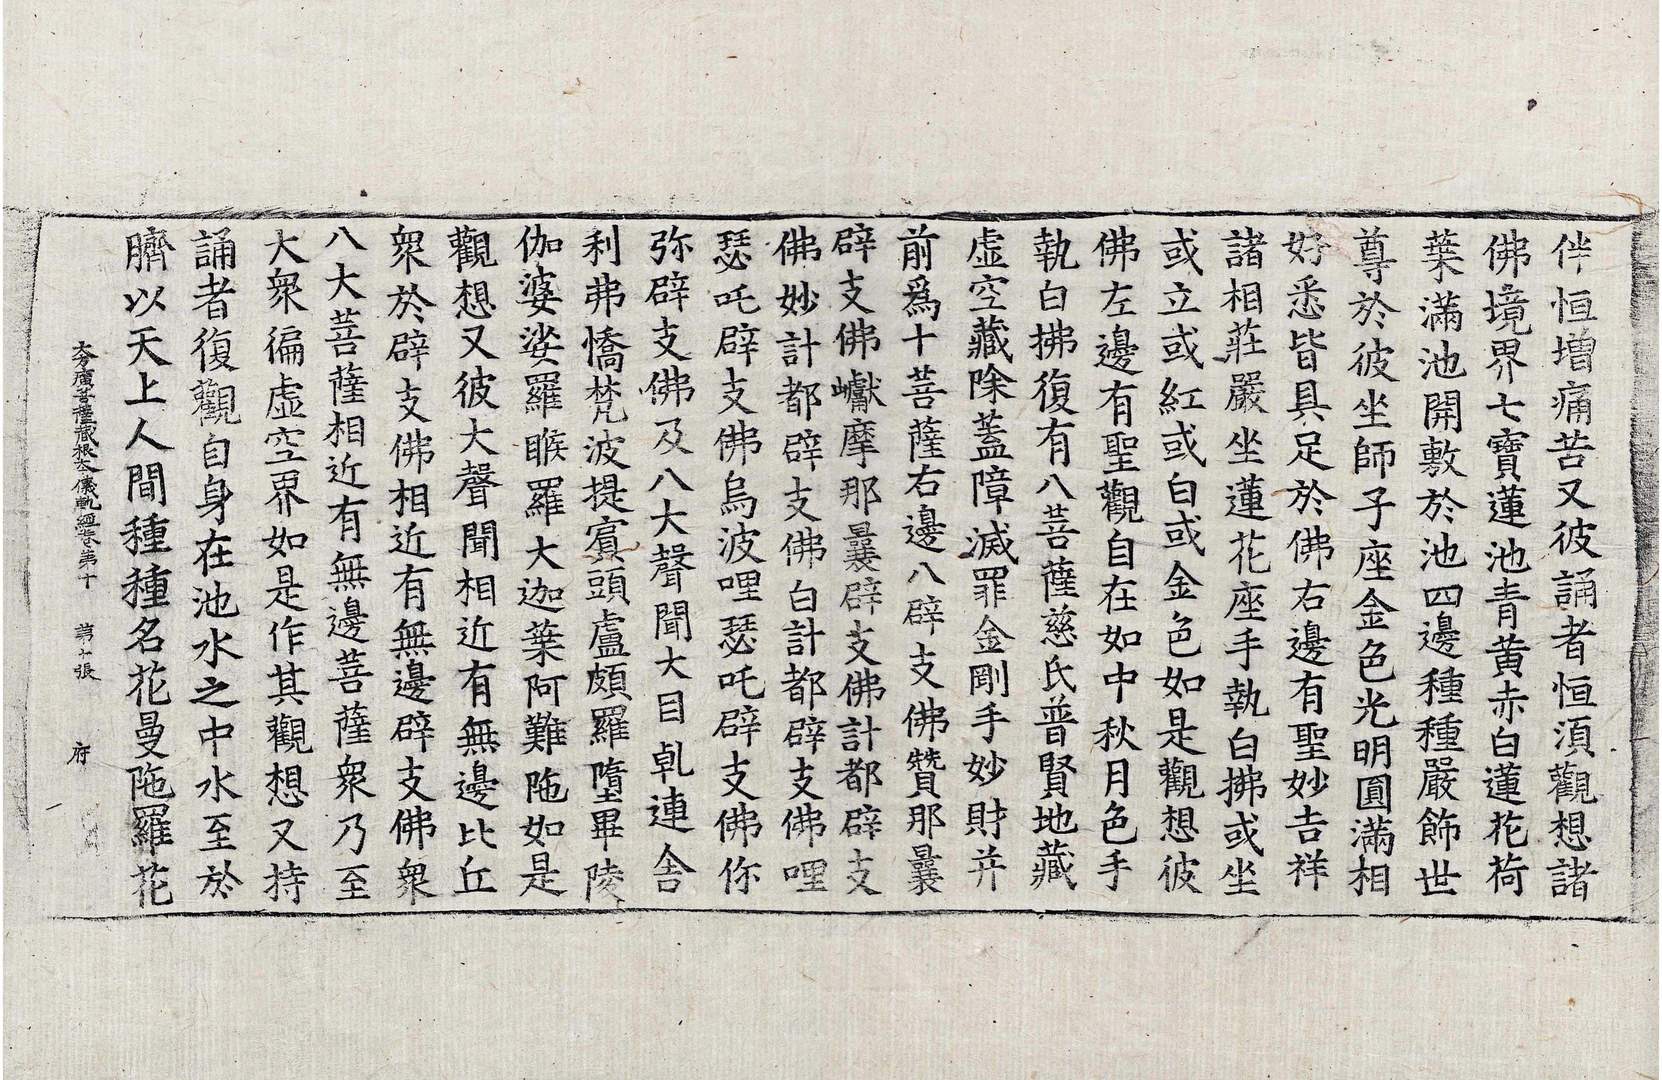 伴恒增痛苦又彼誦者恒須觀想諸
佛境界七寶蓮池青黄赤白蓮花荷
葉滿池開敷於池四邊種種嚴飾世
尊於彼坐師子座金色光明圓滿相
好悉皆具足於佛右邊有聖妙吉祥
諸相莊嚴坐蓮花座手執白拂或坐
或立或紅或白或金色如是觀想彼
佛左邊有聖觀自在如中秋月色手
執白拂復有八菩薩慈氏普賢地藏
虛空藏除蓋障滅罪金剛手妙財并
前爲十菩薩右邊八辟支佛贊那曩
辟支佛巘摩那曩辟支佛計都辟支
佛妙計都辟支佛白計都辟支佛哩
瑟吒辟支佛烏波哩瑟吒辟支佛你
弥辟支佛及八大聲聞大目乹連舍
利弗憍梵波提賔頭盧頗羅墮畢陵
伽婆娑羅睺羅大迦葉阿難陁如是
觀想又彼大聲聞相近有無邊比丘
衆於辟支佛相近有無邊辟支佛衆
八大菩薩相近有無邊菩薩衆乃至
大衆徧虛空界如是作其觀想又持
誦者復觀自身在池水之中水至於
臍以天上人間種種名花曼陁羅花
大方廣菩薩藏根本儀軌經卷第十 第十張 府